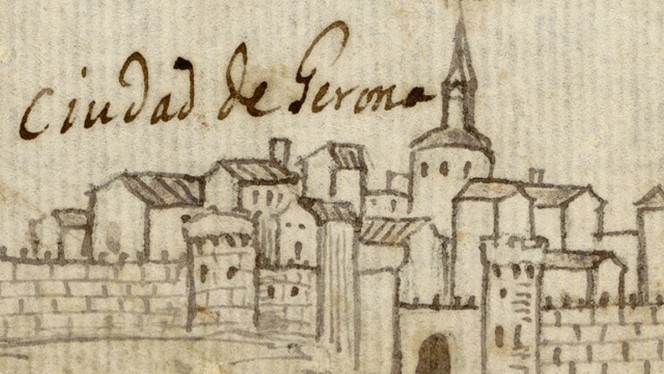 Ciudad de Gerona